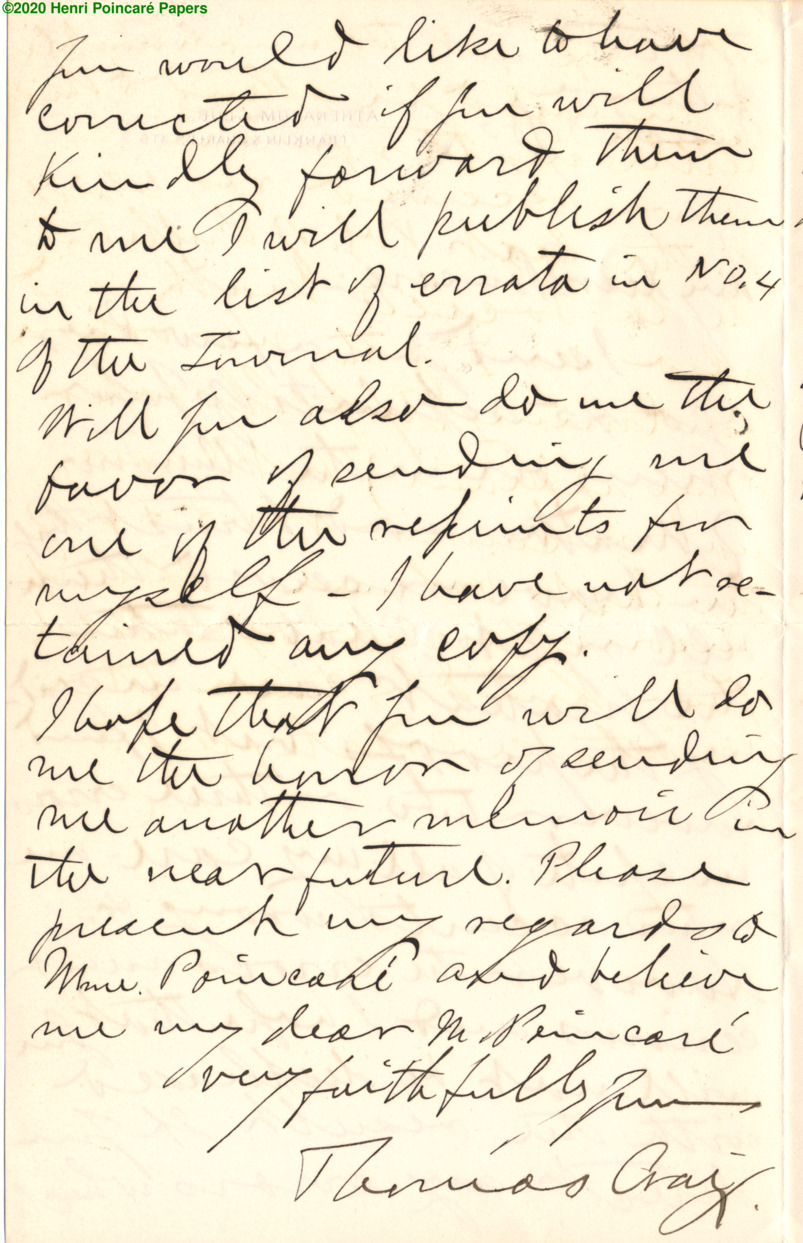 ©2020 Henri Poincaré Papers
you would like to have
corrected if you will
kindly forward them
to me I will publish them
in the list of errata in No. 4
of the Journal.
Will you also do me the
favor of sending me
one of the reprints for
myself – I have not re-
tained any copy.
I hope that you will do
me the honor of sending
me another memoir in
the near future. Please
present my regards to
Mme. Poincaré and believe
me my dear M. Poincaré
very faithfully yours
Thomas Craig.